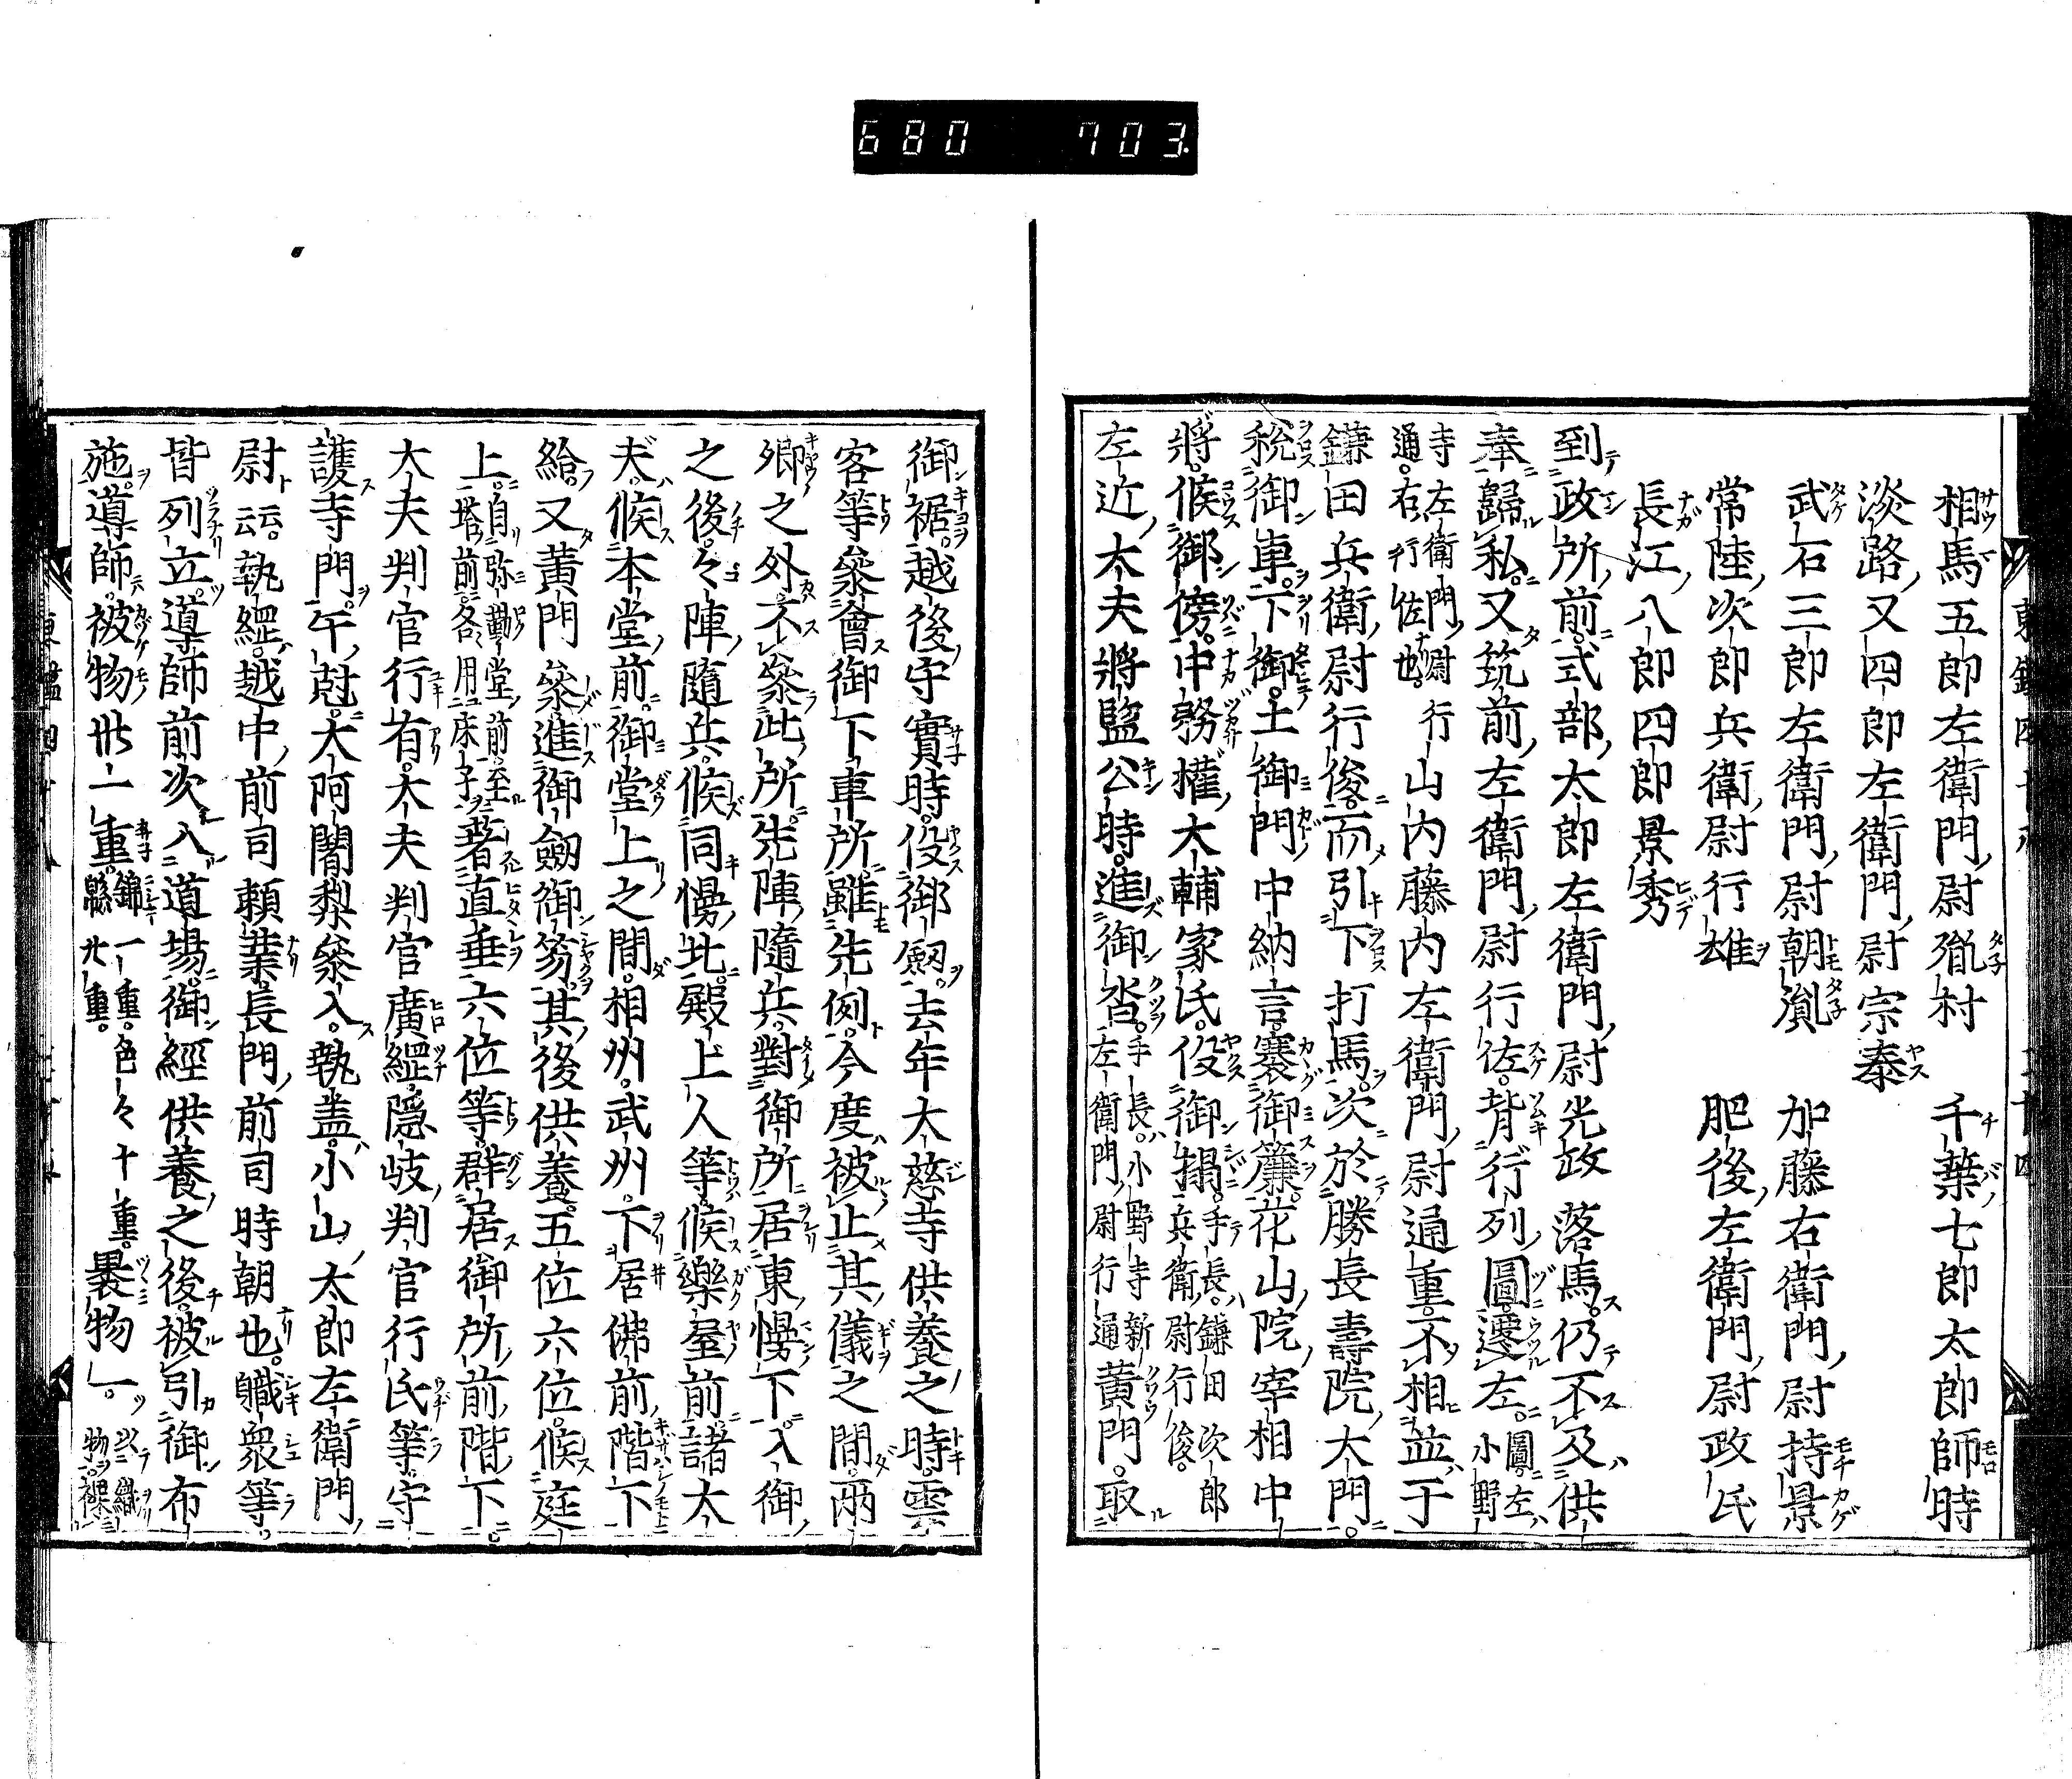 680 703
相馬五郎左衛門尉胤村 千葉七郎太郎師時
淡路又四郎左衛門尉宗泰
武石三郎左衛門尉朝胤 加藤右衛門尉持景
常陸次郎兵衛尉行雄 肥後左衛門尉政氏
長江八郎四郎景秀
到政所前式部太郎左衛門尉光政落馬。仍不及供
奉歸私又筑前左衛門尉行佐背行列圖遷左。圖左小野
寺左衛門尉通。右行佐也。行山内藤内左衛門尉通重不相並于
鎌田兵衛尉行俊而引下打馬次於勝長壽院大門。
税御車。下御。土御門中納言褰御簾。花山院宰相中
將。候御傍。中務權大輔家氏。役御榻。手長。鎌田次郎兵衛尉行俊。
左近大夫將監公時。進御沓。手長。小野寺新左衛門尉行通黄門。取
御裾。越後守實時。役御劔。去年大慈寺供養之時。雲
客等參會御下車所。雖先例。今度被止其儀之間。兩
卿之外不參此所。先陣隨兵。對御所居東幔下。入御
之後。々陣隨兵候同幔北。殿上人等候樂屋前諸大
夫候本堂前。御堂上之間。相州。武州。下居佛前階下
給。又黄門參進御劔御笏。其後供養。五位六位。候庭
上。自弥勒堂前至塔前。各用床子著直垂六位等。群居御所前階下。
大夫判官行有。大夫判官廣綱隱岐判官行氏等守
護寺門。午尅。大阿闍梨參入。執盖。小山太郎左衛門
尉云云。執綱。越中前司頼業長門前司時朝也。職衆等。
皆列立。導師前次入道場。御經供養之後。被引御布
施。導師被物卅一重。錦一重。色々十重。緜廿重。裹物一。以織物裸